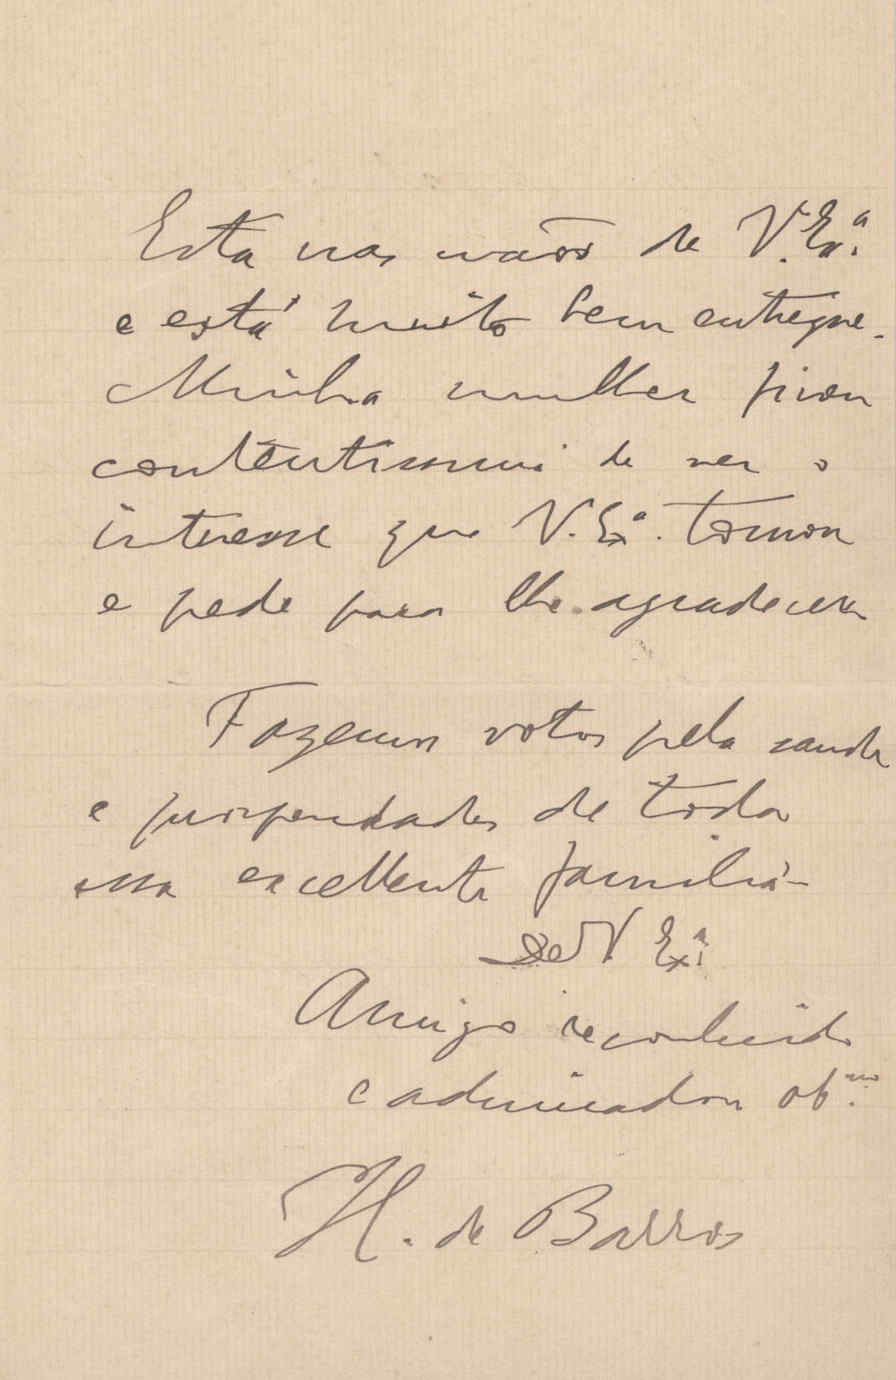 Esta nas mãos de V. Exª.
e está muito bem entregue.
Minha mulher ficou
contentissima de ver o
interesse que V. Exª. tomou
e pede para lhe agradecer
Fazemos votos pela saude
e prosperidades de toda
essa excellente familia -
De V Exª
Amigo reconhecido
e admirador obmo.
H. de Barros